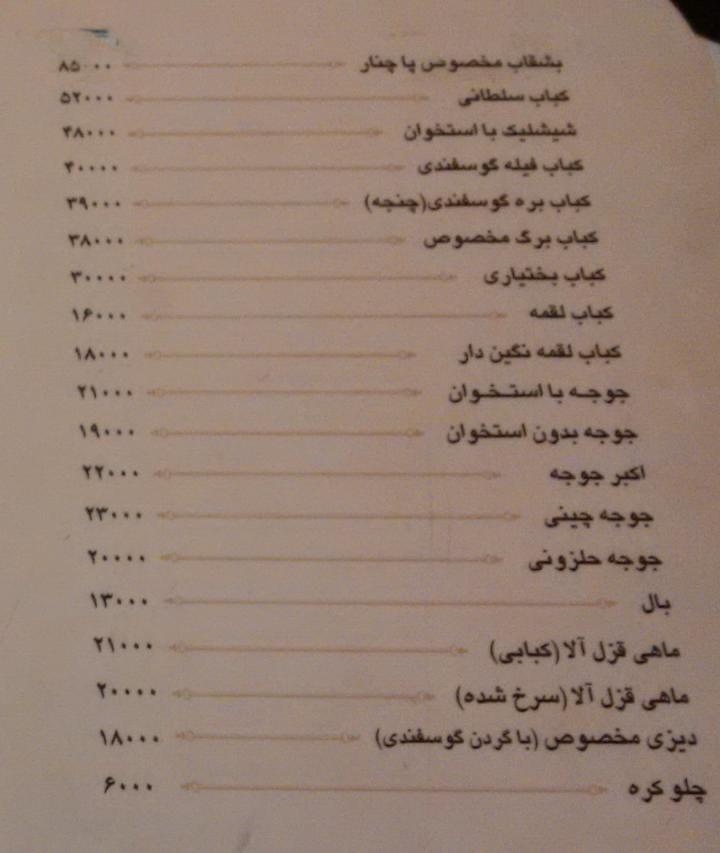 بشقاب مخصوص پا چنار ۸۵۰۰۰
کباب سلطانی ۵۲۰۰۰
شیشلیک با استخوان ۴۸۰۰۰
کباب فیله گوسفندی ۴۰۰۰۰
کباب بره گوسفندی(چنجه) ۳۹۰۰۰
کباب برگ مخصوص ۳۸۰۰۰
کباب بختیاری ۳۰۰۰۰
کباب لقمه ۱۶۰۰۰
کباب لقمه نگین دار ۱۸۰۰۰
جوجه با استخوان ۲۱۰۰۰
جوجه بدون استخوان ۱۹۰۰۰
اکبر جوجه ۲۲۰۰۰
جوجه چینی ۲۳۰۰۰
جوجه حلزونی ۲۰۰۰۰
بال ۱۳۰۰۰
ماهی قزل آلا (کبابی) ۲۱۰۰۰
ماهی قزل آلا (سرخ شده) ۲۰۰۰۰
دیزی مخصوص (با گردن گوسفندی) ۱۸۰۰۰
چلو کره ۶۰۰۰